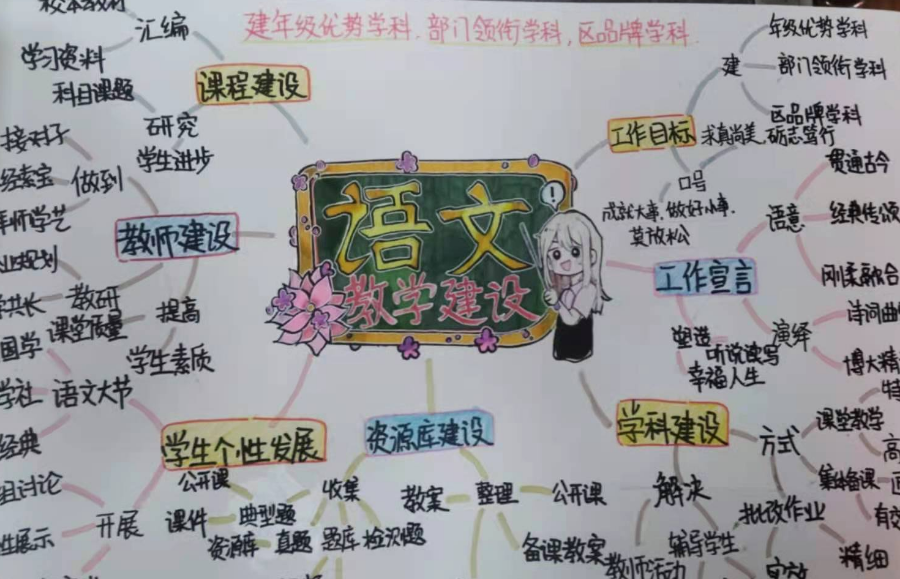 建年级优势学科.部门领衔学科,区品牌学科.
语文
教学建设
课程建设
汇编
学习资料
科目课题
研究
学生进步
教师建设
做到
接对子
教研
课堂质量
提高
学生素质
学生个性发展
语文大节
经典
开展
资源库建设
收集
公开课
课件
典型题
资源库
真题
题库
检测题
整理
教案
公开课
备课教案
学科建设
方式
课堂教学
集体备课
批改作业
精细
解决
辅导学生
教师活动
工作宣言
语意
贯通古今
经典传颂
刚柔融合
演绎
诗词曲
博大精
塑造
听说读写
幸福人生
工作目标
建
年级优势学科
部门领衔学科
区品牌学科
口号
求真尚美.砺志笃行
成就大事.做好小事.
莫放松